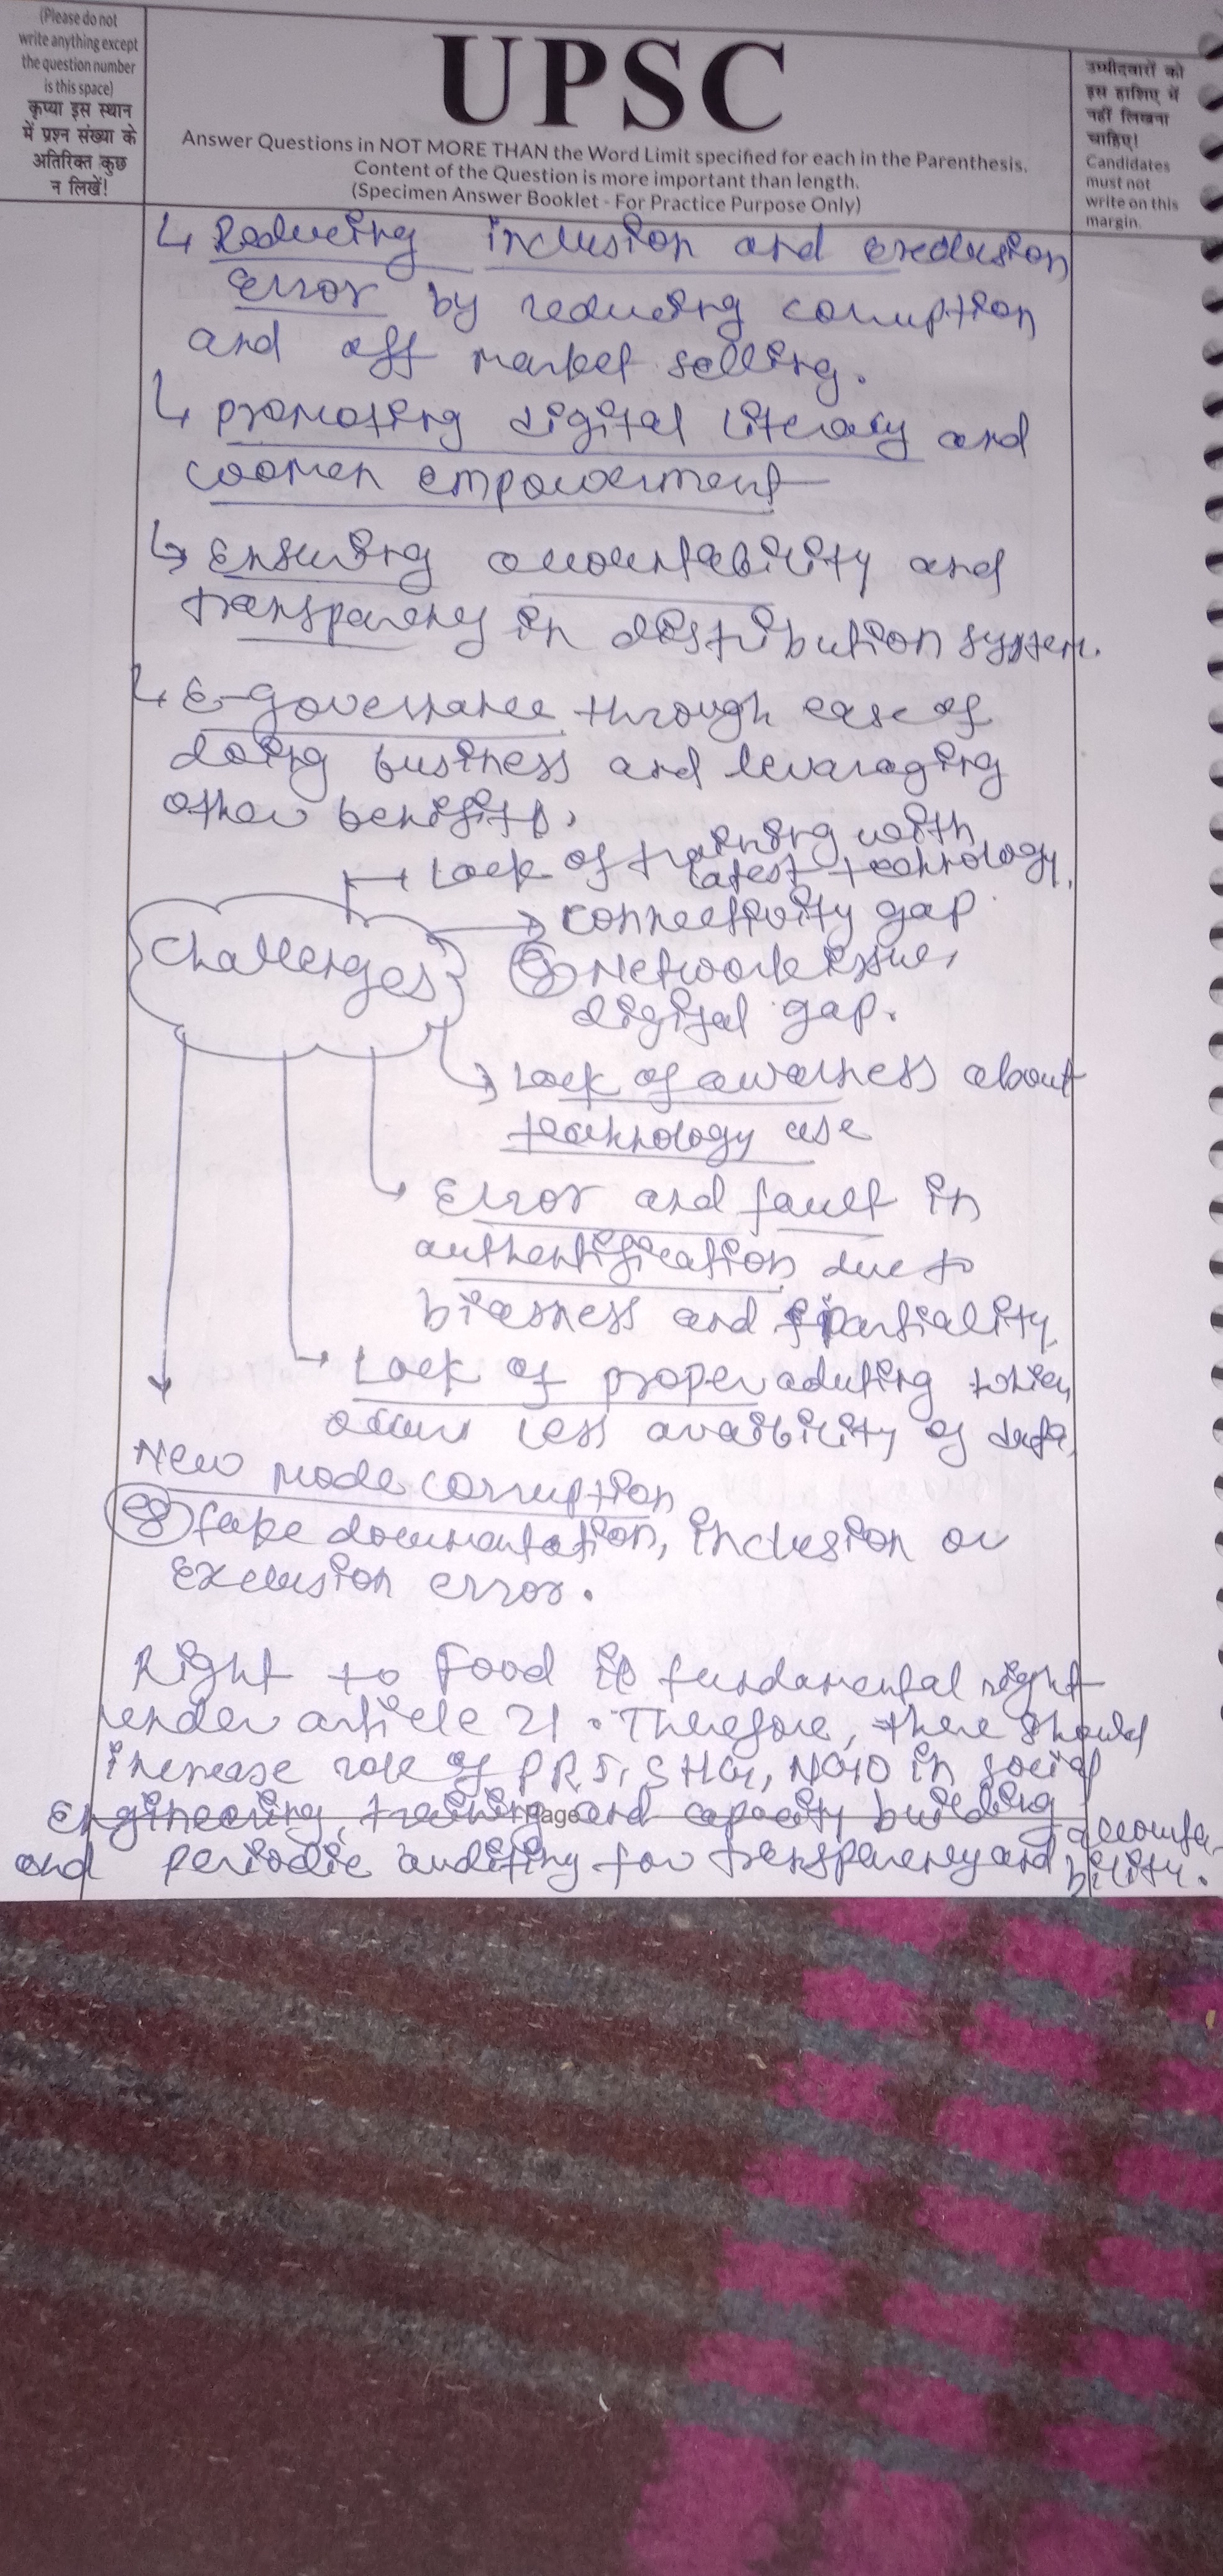 (Please do not
write anything except
the question number
is this space)
कृप्या इस स्थान
में प्रश्न संख्या के
अतिरिक्त कुछ
न लिखें!
UPSC
Answer Questions in NOT MORE THAN the Word Limit specified for each in the Parenthesis.
Content of the Question is more important than length.
(Specimen Answer Booklet - For Practice Purpose Only)
उम्मीदवारों को
इस हाशिए में
नहीं लिखना
चाहिए!
Candidates
must not
write on this
margin.
↳ Reducing inclusion and exclusion
Error by reducing corruption
and off market selling.
↳ promoting digital literacy and
women empowerment
↳ Ensuring accountability and
transparency in distribution system.
↳ E-governance through ease of
doing business and levaraging
other benefits.
Challenges
→ Lack of training with
latest technology.
→ connectivity gap
eg Network issue,
digital gap.
→ Lack of awarness about
technology use
→ Error and fault in
authentification due to
biasness and partiality
→ Lack of proper aduting
occur less avaibility of data
New mode corruption
eg fake documentation, inclusion or
exclusion error.
Right to Food is fundamental right
under article 21. Therefore, there should
increase role of PRI, SHG, NGO in social
Engineering, training and capacity building
Page
and periodic auditing for transparency and accounta-
bility.